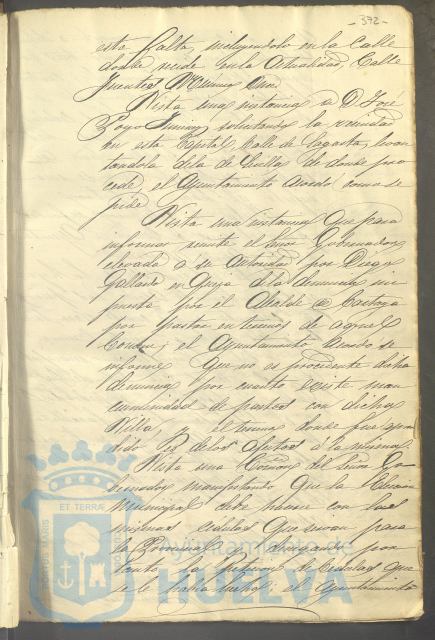 -372-
esta falta, incluyendolo en la Calle
donde reside en la Actualidad, Calle
Fuentes Número Once.
Vista una instancia de D. José
Pozo Jimenez solicitando la vecindad
en esta Capital, Calle de Sagasta, levan
tandola de la de Sevilla de donde pro
cede, el Ayuntamiento acordó como se
pide.
Vista una instancia que para
informe remite el Señor Gobernador
elevada a su autoridad por Diego
Gallardo en queja de la denuncia im
puesta por el Alcalde de Cartaya
por pastar en terrenos de aquel
Comun; el Ayuntamiento acordó se
informe que no es procedente dicha
denuncia por cuanto existe man
comunidad de pastos con dicha
Villa, y el terreno donde fue apren
dido es de los afectos á la misma.
Vista una Comón del Señor Go
bernador manifestando que la
municipal debe hacerse con las
mismas cedulas que sirvan para
la Provincial y denegando por
tanto la peticion de Cedulas que
se le habia hecho; el Ayuntamiento
PORTUS MARIS
ET TERRÆ
Ayuntamiento de
HUELVA